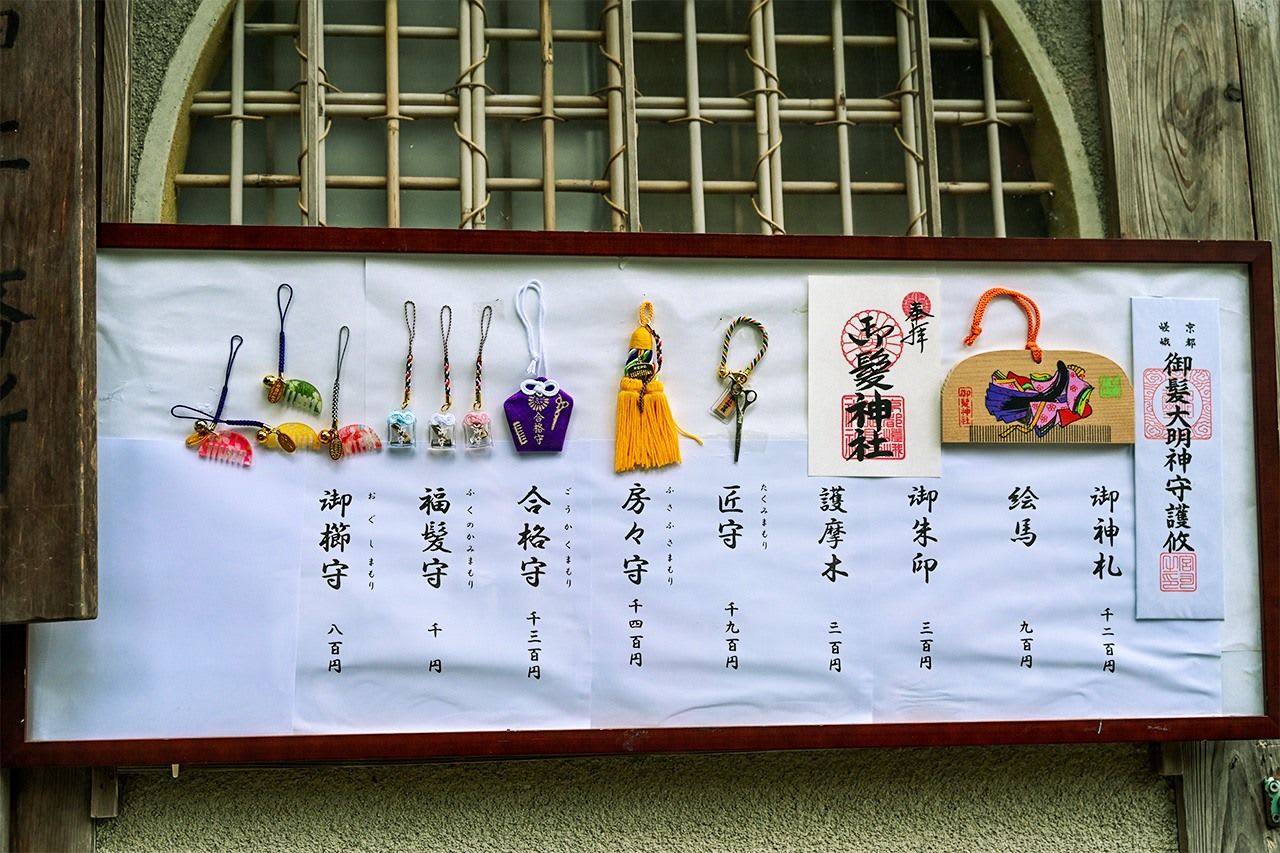 京都
嵯峨
御髪大明神守護攸
奉拝
御髪神社
合格守
御神札
千二百円
絵馬
九百円
御朱印
三百円
護摩木
二百円
たくみまもり
匠守
千九百円
ふさふさまもり
房々守
千四百円
ごうかくまもり
合格守
千三百円
ふくのかみまもり
福髪守
千円
おぐしまもり
御櫛守
八百円